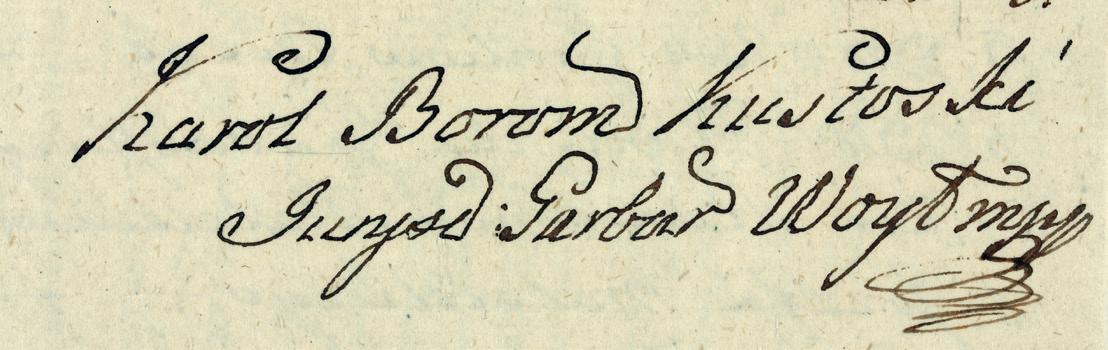 Karol Borom Kustoski
Jurysd: Garbar Woyt mpp